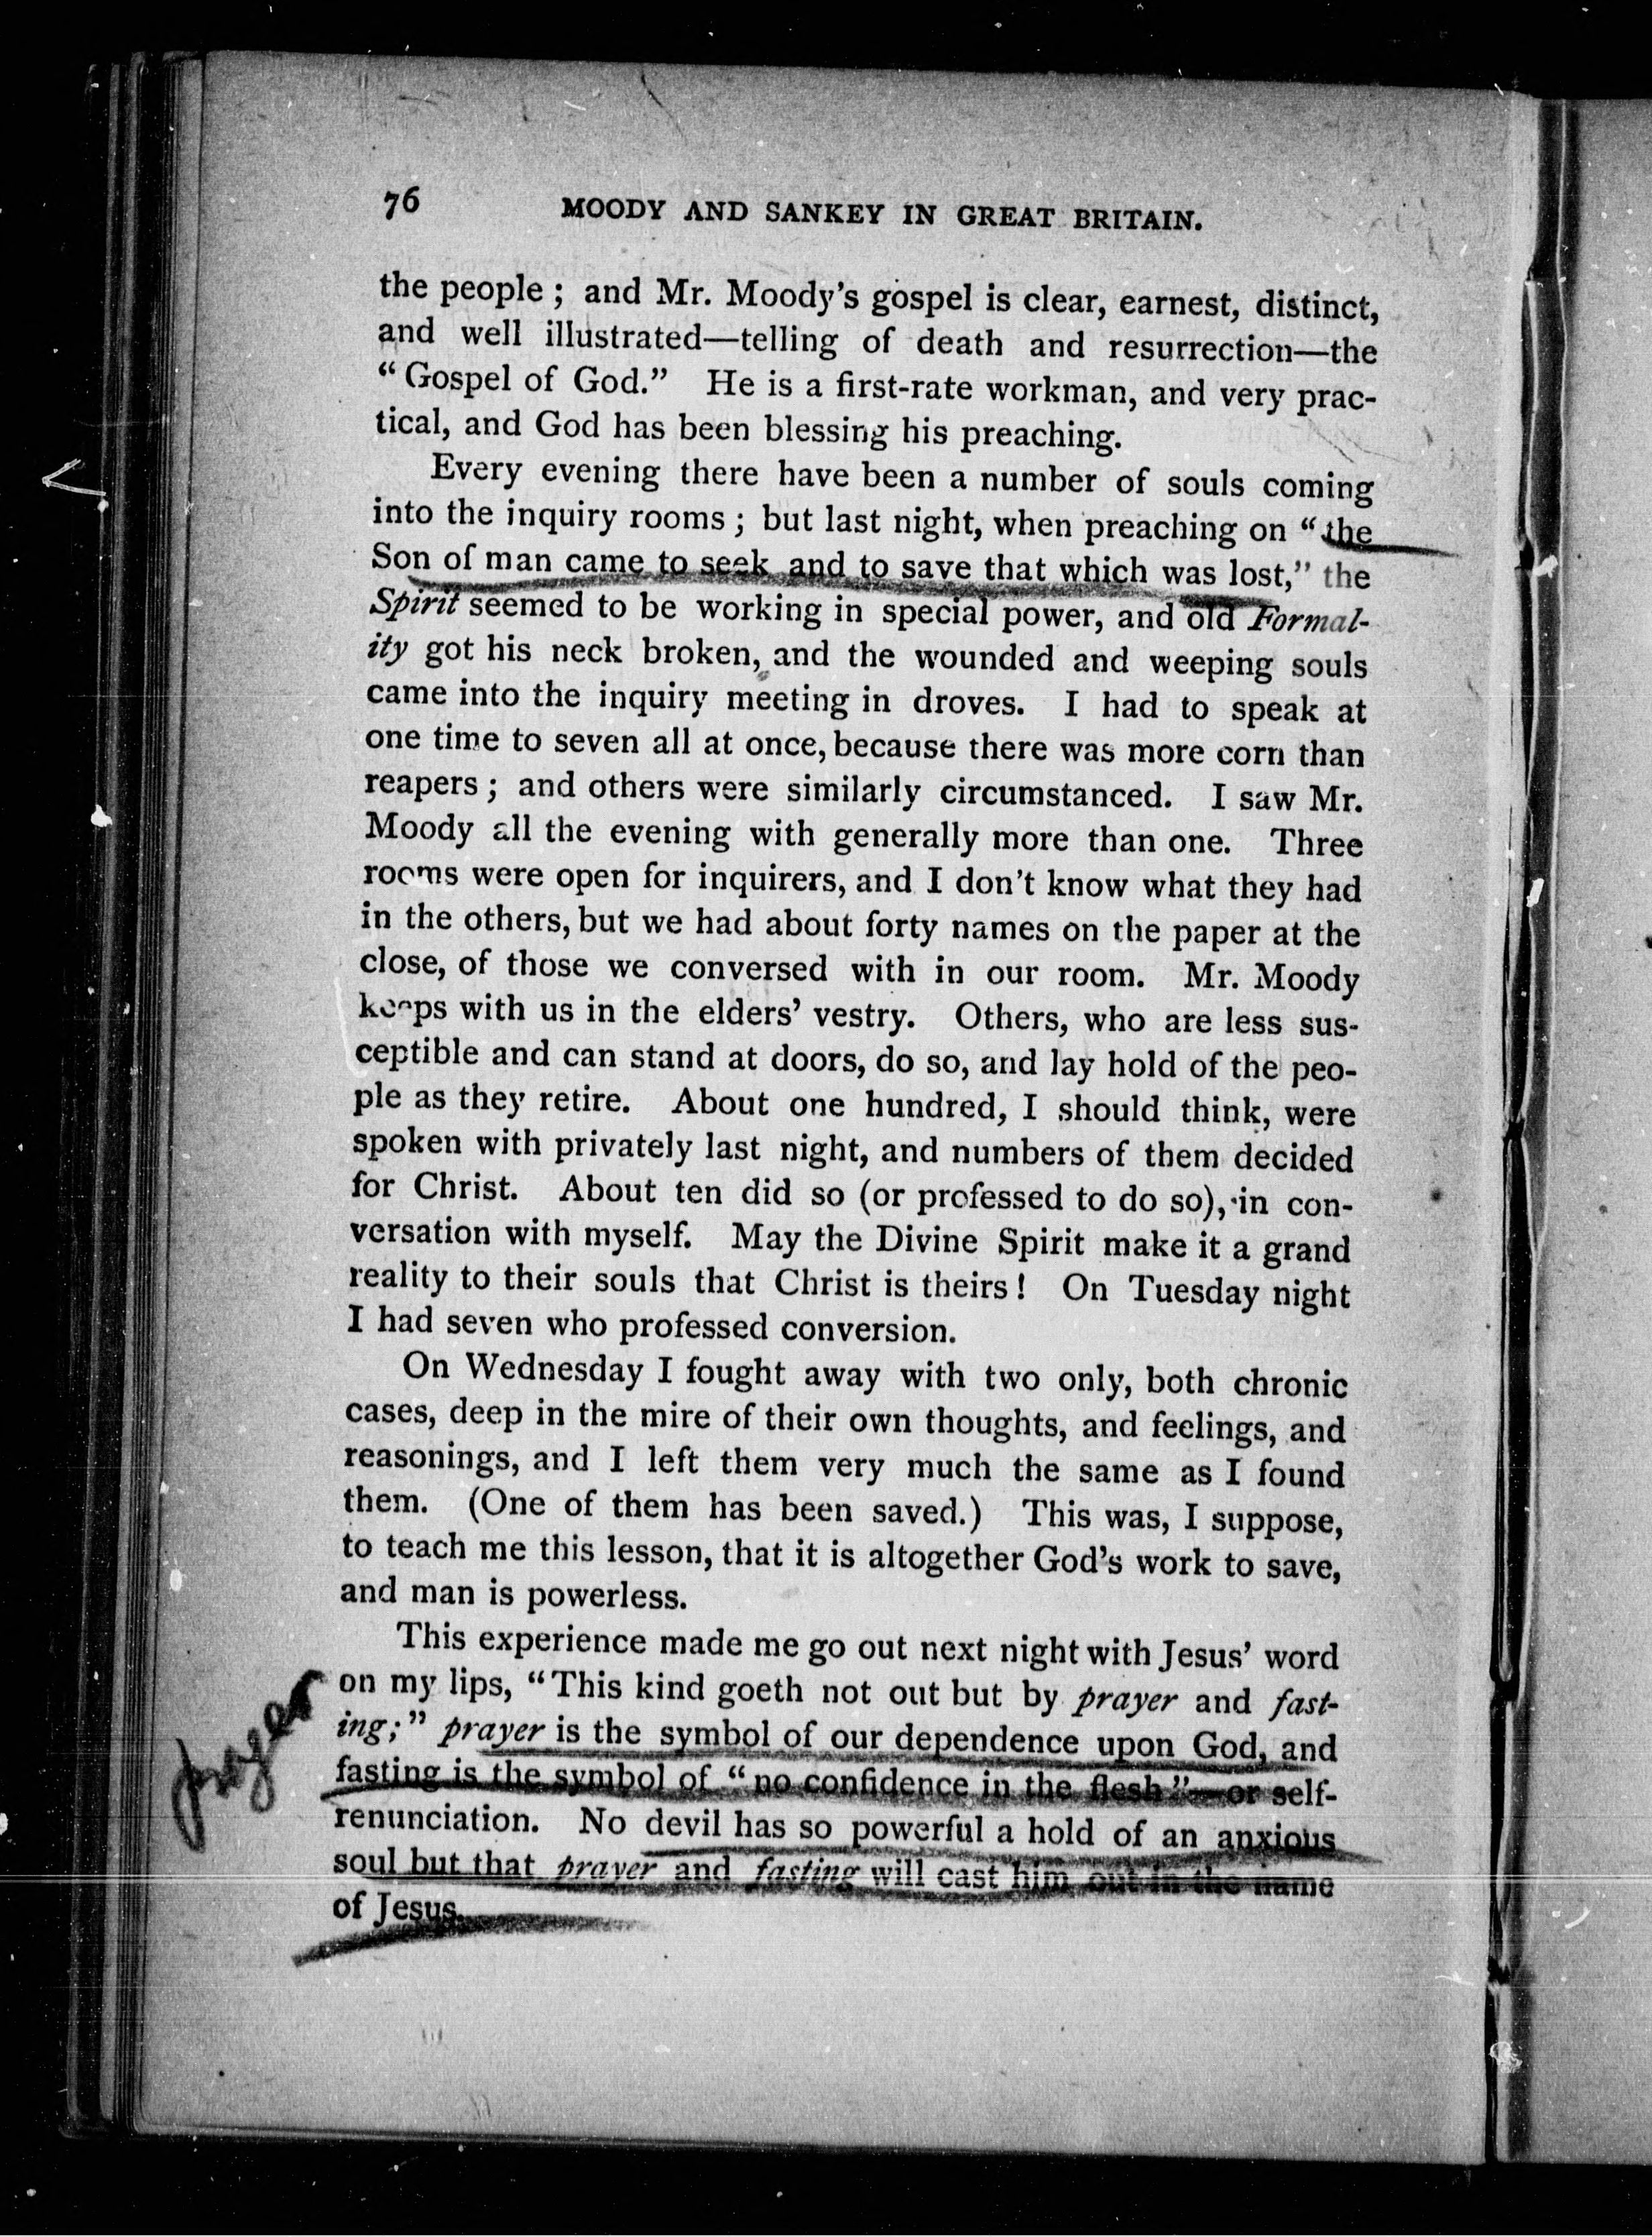 76 MOODY AND SANKEY IN GREAT BRITAIN.
the people ; and Mr. Moody's gospel is clear, earnest, distinct,
and well illustrated—telling of death and resurrection—the
“ Gospel of God.” He is a first-rate workman, and very prac-
tical, and God has been blessing his preaching.
Every evening there have been a number of souls coming
into the inquiry rooms ; but last night, when preaching on “ the
Son of man came to seek and to save that which was lost,” the
Spirit seemed to be working in special power, and old Formal-
ity got his neck broken, and the wounded and weeping souls
came into the inquiry meeting in droves. I had to speak at
one time to seven all at once, because there was more corn than
reapers ; and others were similarly circumstanced. I saw Mr.
Moody all the evening with generally more than one. Three
rooms were open for inquirers, and I don't know what they had
in the others, but we had about forty names on the paper at the
close, of those we conversed with in our room. Mr. Moody
keeps with us in the elders' vestry. Others, who are less sus-
ceptible and can stand at doors, do so, and lay hold of the peo-
ple as they retire. About one hundred, I should think, were
spoken with privately last night, and numbers of them decided
for Christ. About ten did so (or professed to do so), in con-
versation with myself. May the Divine Spirit make it a grand
reality to their souls that Christ is theirs ! On Tuesday night
I had seven who professed conversion.
On Wednesday I fought away with two only, both chronic
cases, deep in the mire of their own thoughts, and feelings, and
reasonings, and I left them very much the same as I found
them. (One of them has been saved.) This was, I suppose,
to teach me this lesson, that it is altogether God's work to save,
and man is powerless.
This experience made me go out next night with Jesus' word
on my lips, “This kind goeth not out but by prayer and fast-
ing;” prayer is the symbol of our dependence upon God, and
fasting is the symbol of “ no confidence in the flesh ”—or self-
renunciation. No devil has so powerful a hold of an anxious
soul but that prayer and fasting will cast him out in the name
of Jesus.
prayer